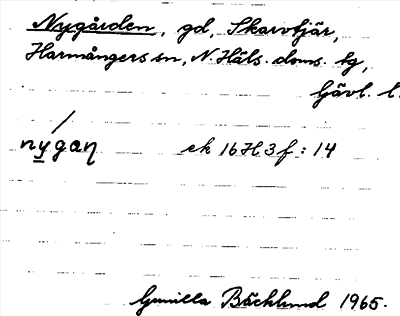 Nygården, gd, Skarvtjär,
Harmångers sn, N. Häls. doms. tg,
Gävl. l.
nygaŋ ek 16H3f : 14
Gunilla Bäcklund 1965.